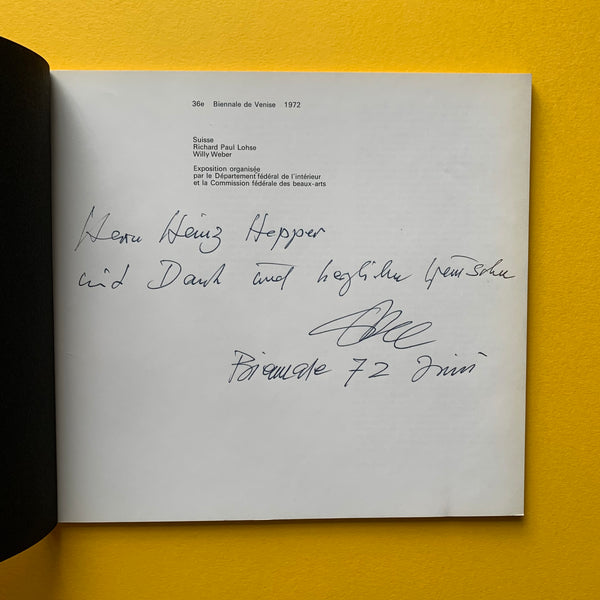 36e Biennale de Venise 1972
Suisse
Richard Paul Lohse
Willy Weber
Exposition organisée
par le Département fédéral de l'intérieur
et la Commission fédérale des beaux-arts
Herrn Heinz Hepper
mit Dank und herzlichen Wünschen
Biennale 72 Juni